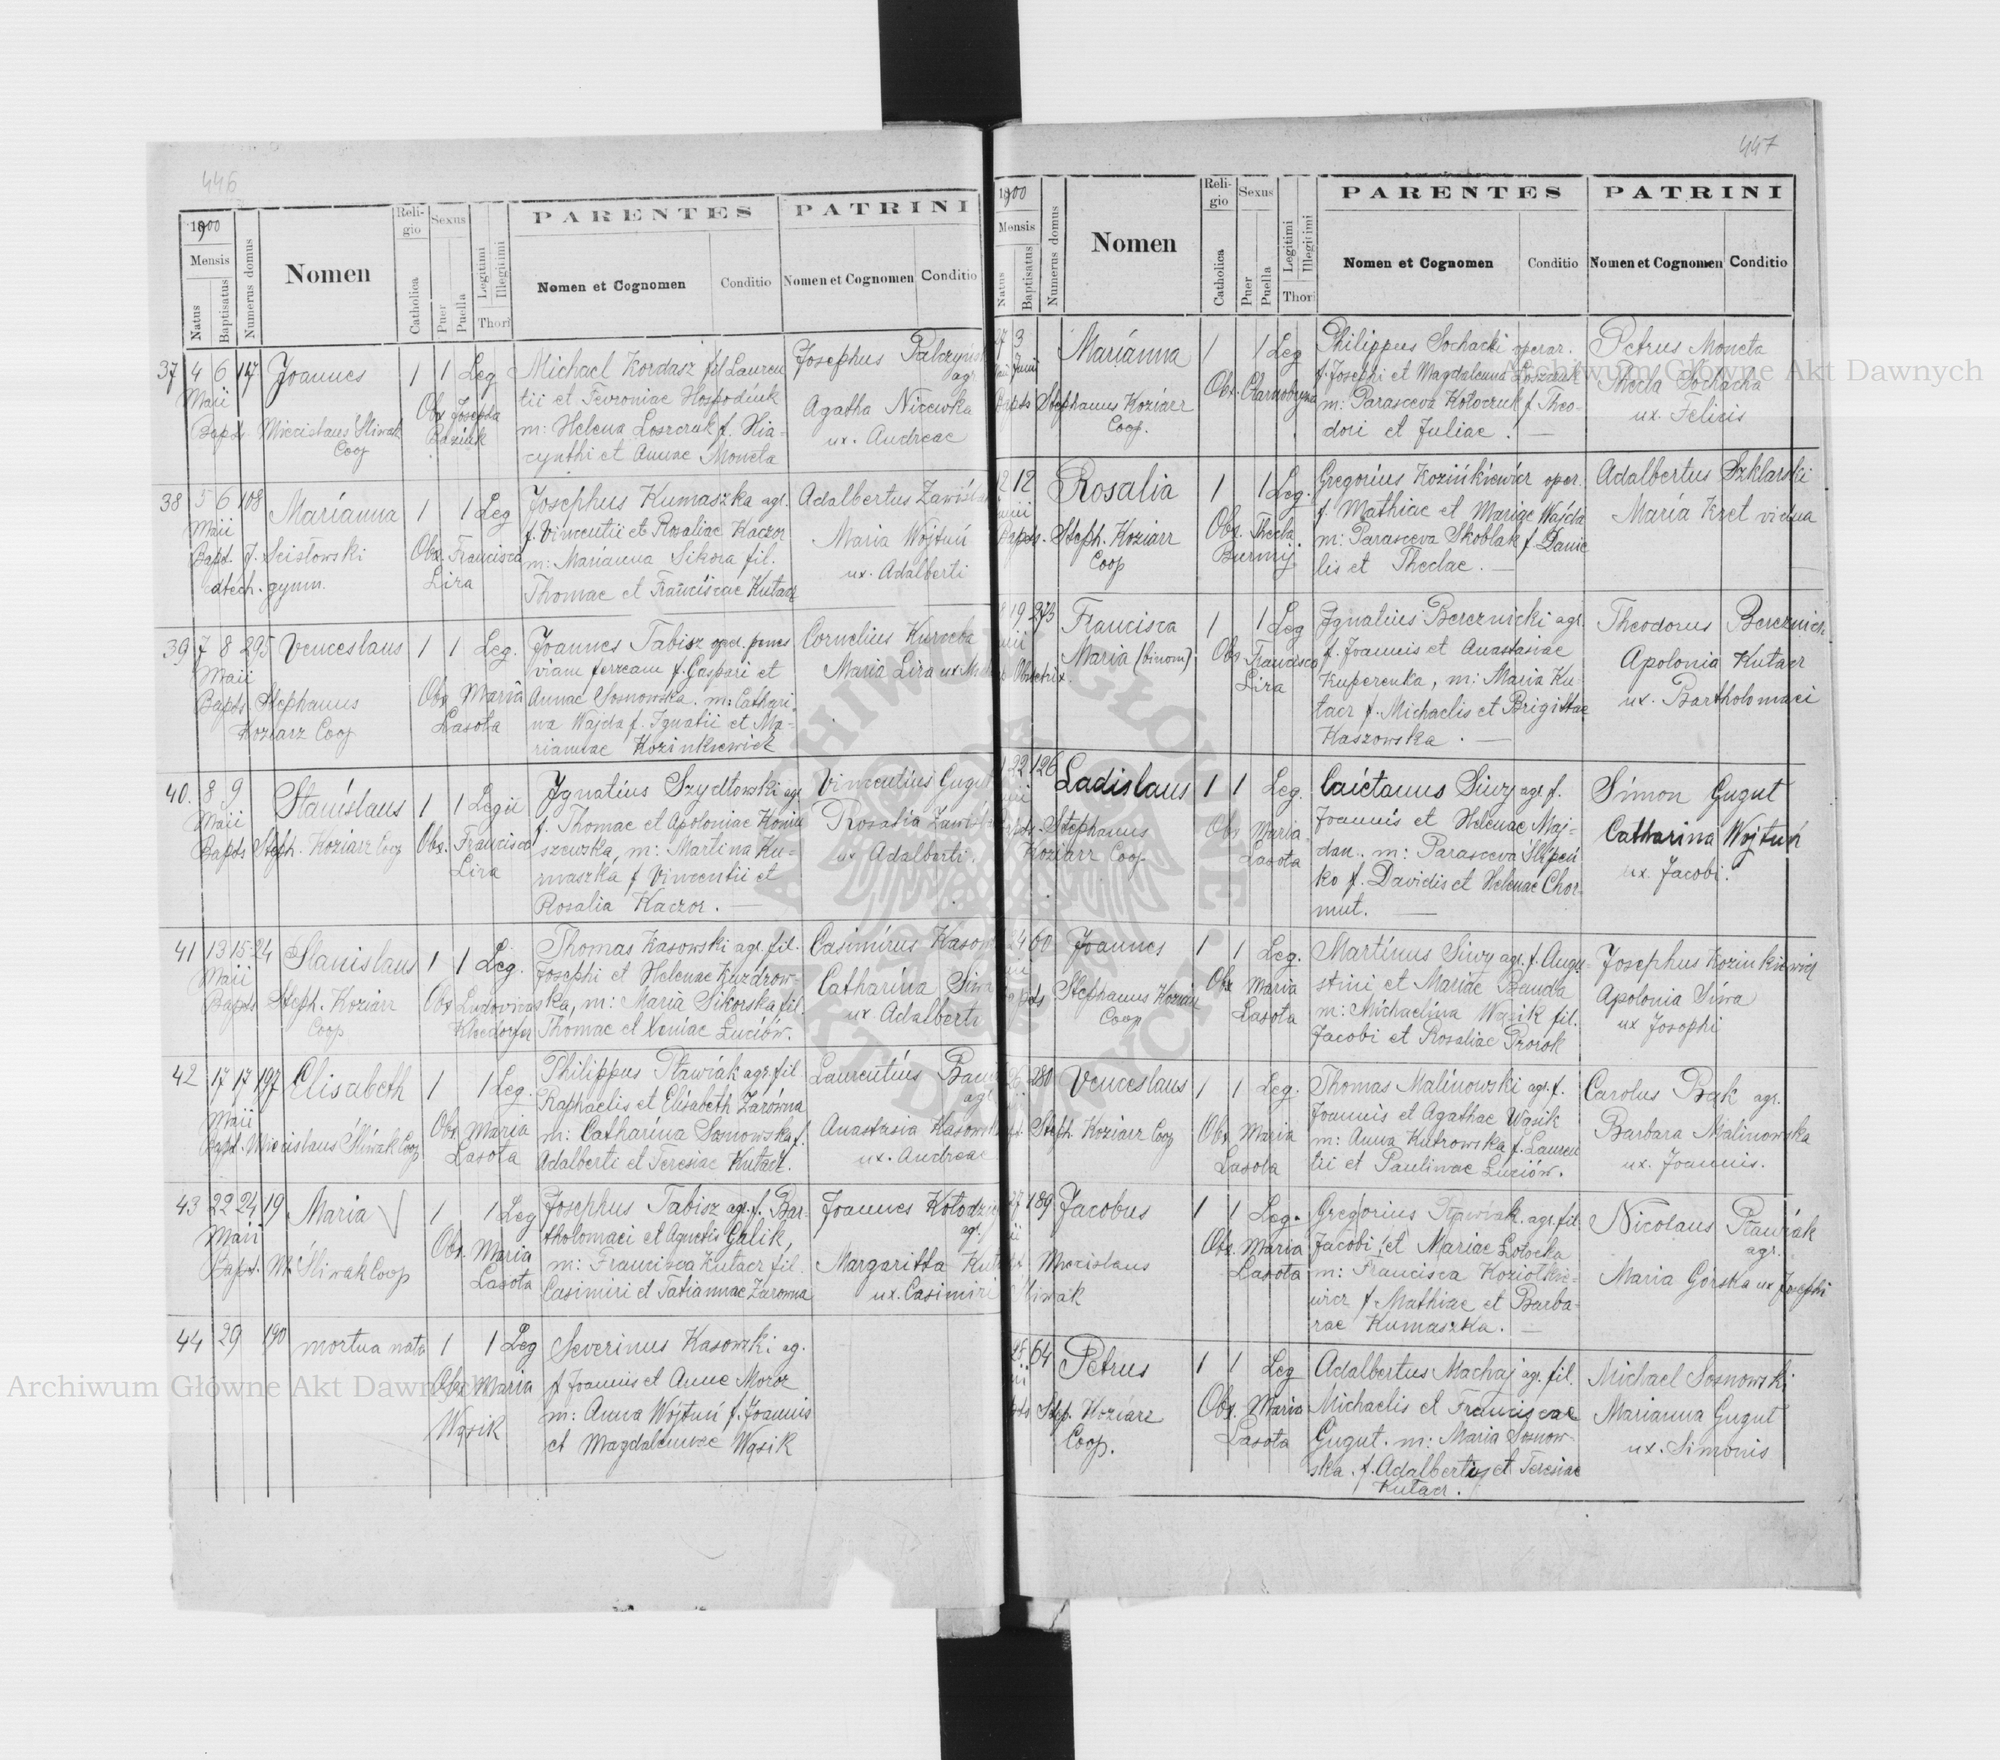 446
1900
Mensis
Natus
Baptisatus
Numerus domus
Nomen
Religio
Catholica
Sexus
Puer
Puella
Legitimi
Illegitimi
Thori
PARENTES
Nomen et Cognomen
Conditio
PATRINI
Nomen et Cognomen
Conditio
37 4 6 147 Joannes 1 1 Leg
Maii
Bapts Miecislaus Śliwak
Coop
Obs Josepha
Michael Kordasz fil Lauren
tii et Fevroniae Hospodiuk
m: Helena Loszczuk f. Hia-
cynthi et Annae Moneta
Josephus
agr
Agatha Nicewka
ux. Andreae
38 5 6 108 Marianna 1 1 Leg
Maii
Bapt. J. Scisłowski
gymn.
Obs. Francisca
Lira
Josephus Kumaszka agr.
f. Vincentii et Rosaliae Kaczor
m: Marianna Sikora fil.
Thomae et Franciscae Kutacz
Adalbertus
Maria Wojtuń
ux. Adalberti
39 7 8 295 Venceslaus 1 1 Leg.
Maii
Bapts Stephanus
Koziarz Coop
Obs. Maria
Lasota
Joannes Tabisz oper. penes
viam ferream f. Gaspari et
Annae Sosnowska. m: Cathari-
na Wajda f. Ignatii et Ma-
riannae Kozinkiewicz
Cornelius Kuroeba
Maria Lira ux
40. 8 9 Stanislaus 1 1 Legit
Maii
Bapts Steph. Koziarz Coop
Obs. Francisca
Lira
Ignatius Szydłowski agr
f. Thomae et Apoloniae Koniu
szewska, m: Martina Ku-
maszka f Vincentii et
Rosalia Kaczor. —
Vincentius Gugut
Rosalia
ux Adalberti.
41 13 15 24 Stanislaus 1 1 Leg.
Maii
Bapts Steph. Koziarz
Coop
Obs Ludovica
Thomas Kasowski agr. fil.
Josephi et Helenae Kuzdrow-
ska, m: Maria Sikorska fil.
Thomae et Xeniae Luciów.
Casimirus
Catharina Siwa
ux. Adalberti
42 17 17 197 Elisabeth 1 1 Leg.
Maii
Bapt. Miecislaus Śliwak Coop
Obs. Maria
Lasota
Philippus Pławiak agr. fil
Raphaelis et Elisabeth Zarówna
m: Catharina Sosnowska f.
Adalberti et Teresiae Kutacz.
Laurentius
agr
Anastasia
ux. Andreae
43 22 24 19 Maria 1 1 Leg
Maii
Bapt. M. Śliwak Coop
Obs. Maria
Lasota
Josephus Tabisz agr. f. Bar-
tholomaei et Agnetis Galik,
m: Francisca Kutacz fil.
Casimiri et Tatiannae Zarowna
Joannes
agr.
Margaritta
ux. Casimiri
44 29 190 mortua nata 1 1 Leg
Obs Maria
Wąsik
Severinus Kasowski ag.
f Joannis et Anne Moroz
m: Anna Wójtuń f. Joannis
et Magdalenae Wąsik
447
1900
Mensis
Natus
Baptisatus
Numerus domus
Nomen
Religio
Catholica
Sexus
Puer
Puella
Legitimi
Illegitimi
Thori
PARENTES
Nomen et Cognomen
Conditio
PATRINI
Nomen et Cognomen
Conditio
3 Marianna 1 1 Leg
Junii
Stephanus Koziarz
Coop.
Obs.
Philippus Sochacki operar.
f. Josephi et Magdalenna Łoszczuk
m: Parasceva Kołoczuk f. Theo-
dori et Juliae. —
Petrus Moneta
Thecla Sochacka
ux. Felicis
12 Rosalia 1 1 Leg.
Steph. Koziarz
Coop
Obs. Thecla
Burmij
Gregorius Kozińkiewicz oper.
f. Mathiae et Mariae Wajda
m: Parasceva Skoblak f. Danie
lis et Theclae. —
Adalbertus Szklarski
Maria Kret vidua
19 273 Francisca 1 1 Leg
Maria (binom)
Obstetrix.
Obs. Francisca
Lira
Ignatius Bereznicki agr.
f. Joannis et Anastasiae
Kuperenka, m: Maria Ku-
tacz f. Michaelis et Brigittae
Kaszowska. —
Theodorus
Apolonia Kutacz
ux. Bartholomaei
22 126 Ladislaus 1 1 Leg.
Stephanus
Koziarz Coop.
Obs Maria
Lasota
Caietanus Siwy agr f.
Joannis et Helenae Maj-
dan. m: Parasceva Slipeń
ko f. Davidis et Helenae Chor-
mut. —
Simon Gugut
Catharina Wojtuń
ux. Jacobi.
24 60 Joannes 1 1 Leg.
Stephanus Koziarz
Coop
Obs Maria
Lasota
Martinus Siwy agr. f. Augu-
stini et Mariae Benda
m: Michaelina Wąsik fil.
Jacobi et Rosaliae Prorok
Josephus Kozinkiewicz
Apolonia Siwa
ux Josephi
280 Venceslaus 1 1 Leg.
Steph. Koziarz Coop
Obs. Maria
Lasota
Thomas Malinowski agr. f.
Joannis et Agathae Wąsik
m: Anna Kutrowska f. Lauren
tii et Paulinae Luciów.
Carolus Bąk agr.
Barbara Malinowska
ux. Joannis.
27 189 Jacobus 1 1 Leg.
Miecislaus
Śliwak
Obs. Maria
Lasota
Gregorius Pławiak agr. fil.
Jacobi et Mariae Łotocka
m: Francisca Koziołkie-
wicz f Mathiae et Barba-
rae Kumaszka. —
Nicolaus Pławiak
agr.
Maria Górska ux Josephi
64 Petrus 1 1 Leg
Step. Koziarz
Coop.
Obs. Maria
Lasota
Adalbertus Machaj agr. fil.
Michaelis et Franciscae
Gugut. m: Maria Sosnow-
ska. f. Adalberti et Teresiae
Kutacz.
Michael Sosnowski
Marianna Gugut
ux. Simonis
Archiwum Główne Akt Dawnych
Archiwum Główne Akt Dawnych
ARCHIWUM GŁÓWNE AKT DAWNYCH